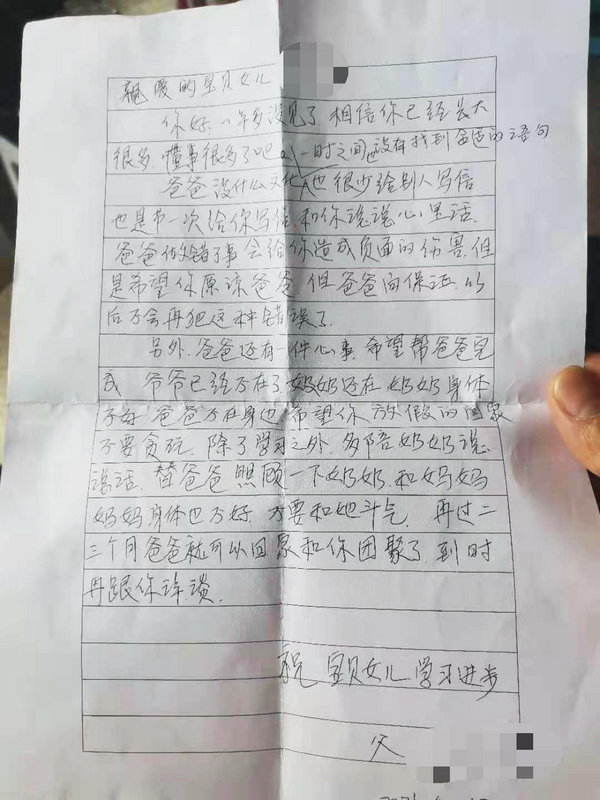 亲爱的宝贝女儿
你好.一年多没见了 相信你已经长大
很多.懂事很多了吧 一时之间,没有找到合适的语句
爸爸没什么文化,也很少给别人写信
也是第一次给你写信.和你说说心里话.
爸爸做错了事会给你造成负面的伤害.但
是希望你原谅爸爸 但爸爸向保证.以
后不会再犯这种错误了.
另外.爸爸还有一件心事.希望帮爸爸完
成 爷爷已经不在了奶奶还在 奶奶身体
不好 爸爸不在身边 希望你放假的回家
不要贪玩.除了学习之外.多陪奶奶说
说话.替爸爸照顾一下奶奶.和妈妈
妈妈身体也不好 不要和她斗气. 再过二
三个月爸爸就可以回家和你团聚了.到时
再跟你详谈.
祝 宝贝女儿学习进步
父